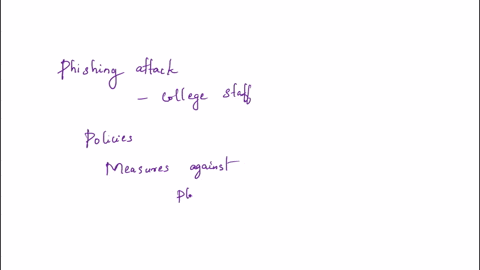 Phishing attack
- college staff
Policies
Measures against
ph